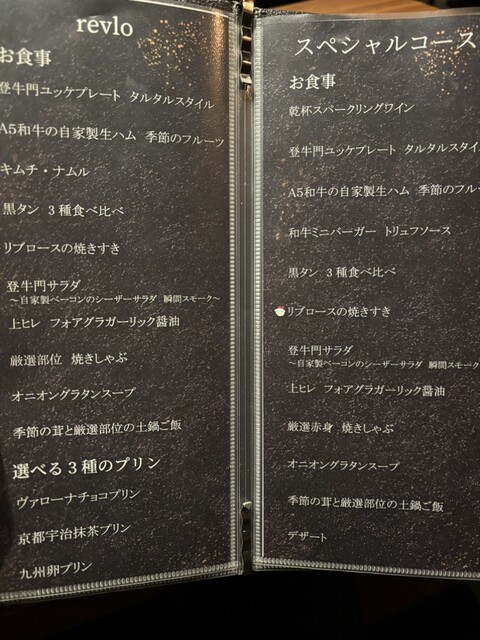 revlo
お食事
登牛門ユッケプレート タルタルスタイル
A5和牛の自家製生ハム 季節のフルーツ
キムチ・ナムル
黒タン 3種食べ比べ
リブロースの焼きすき
登牛門サラダ
～自家製ベーコンのシーザーサラダ 瞬間スモーク～
上ヒレ フォアグラガーリック醤油
厳選部位 焼きしゃぶ
オニオングラタンスープ
季節の茸と厳選部位の土鍋ご飯
選べる3種のプリン
ヴァローナチョコプリン
京都宇治抹茶プリン
九州卵プリン
スペシャルコース
お食事
乾杯スパークリングワイン
登牛門ユッケプレート タルタルスタイル
A5和牛の自家製生ハム 季節のフルー
和牛ミニバーガー トリュフソース
黒タン 3種食べ比べ
リブロースの焼きすき
登牛門サラダ
～自家製ベーコンのシーザーサラダ 瞬間スモーク
上ヒレ フォアグラガーリック醤油
厳選赤身 焼きしゃぶ
オニオングラタンスープ
季節の茸と厳選部位の土鍋ご飯
デザート